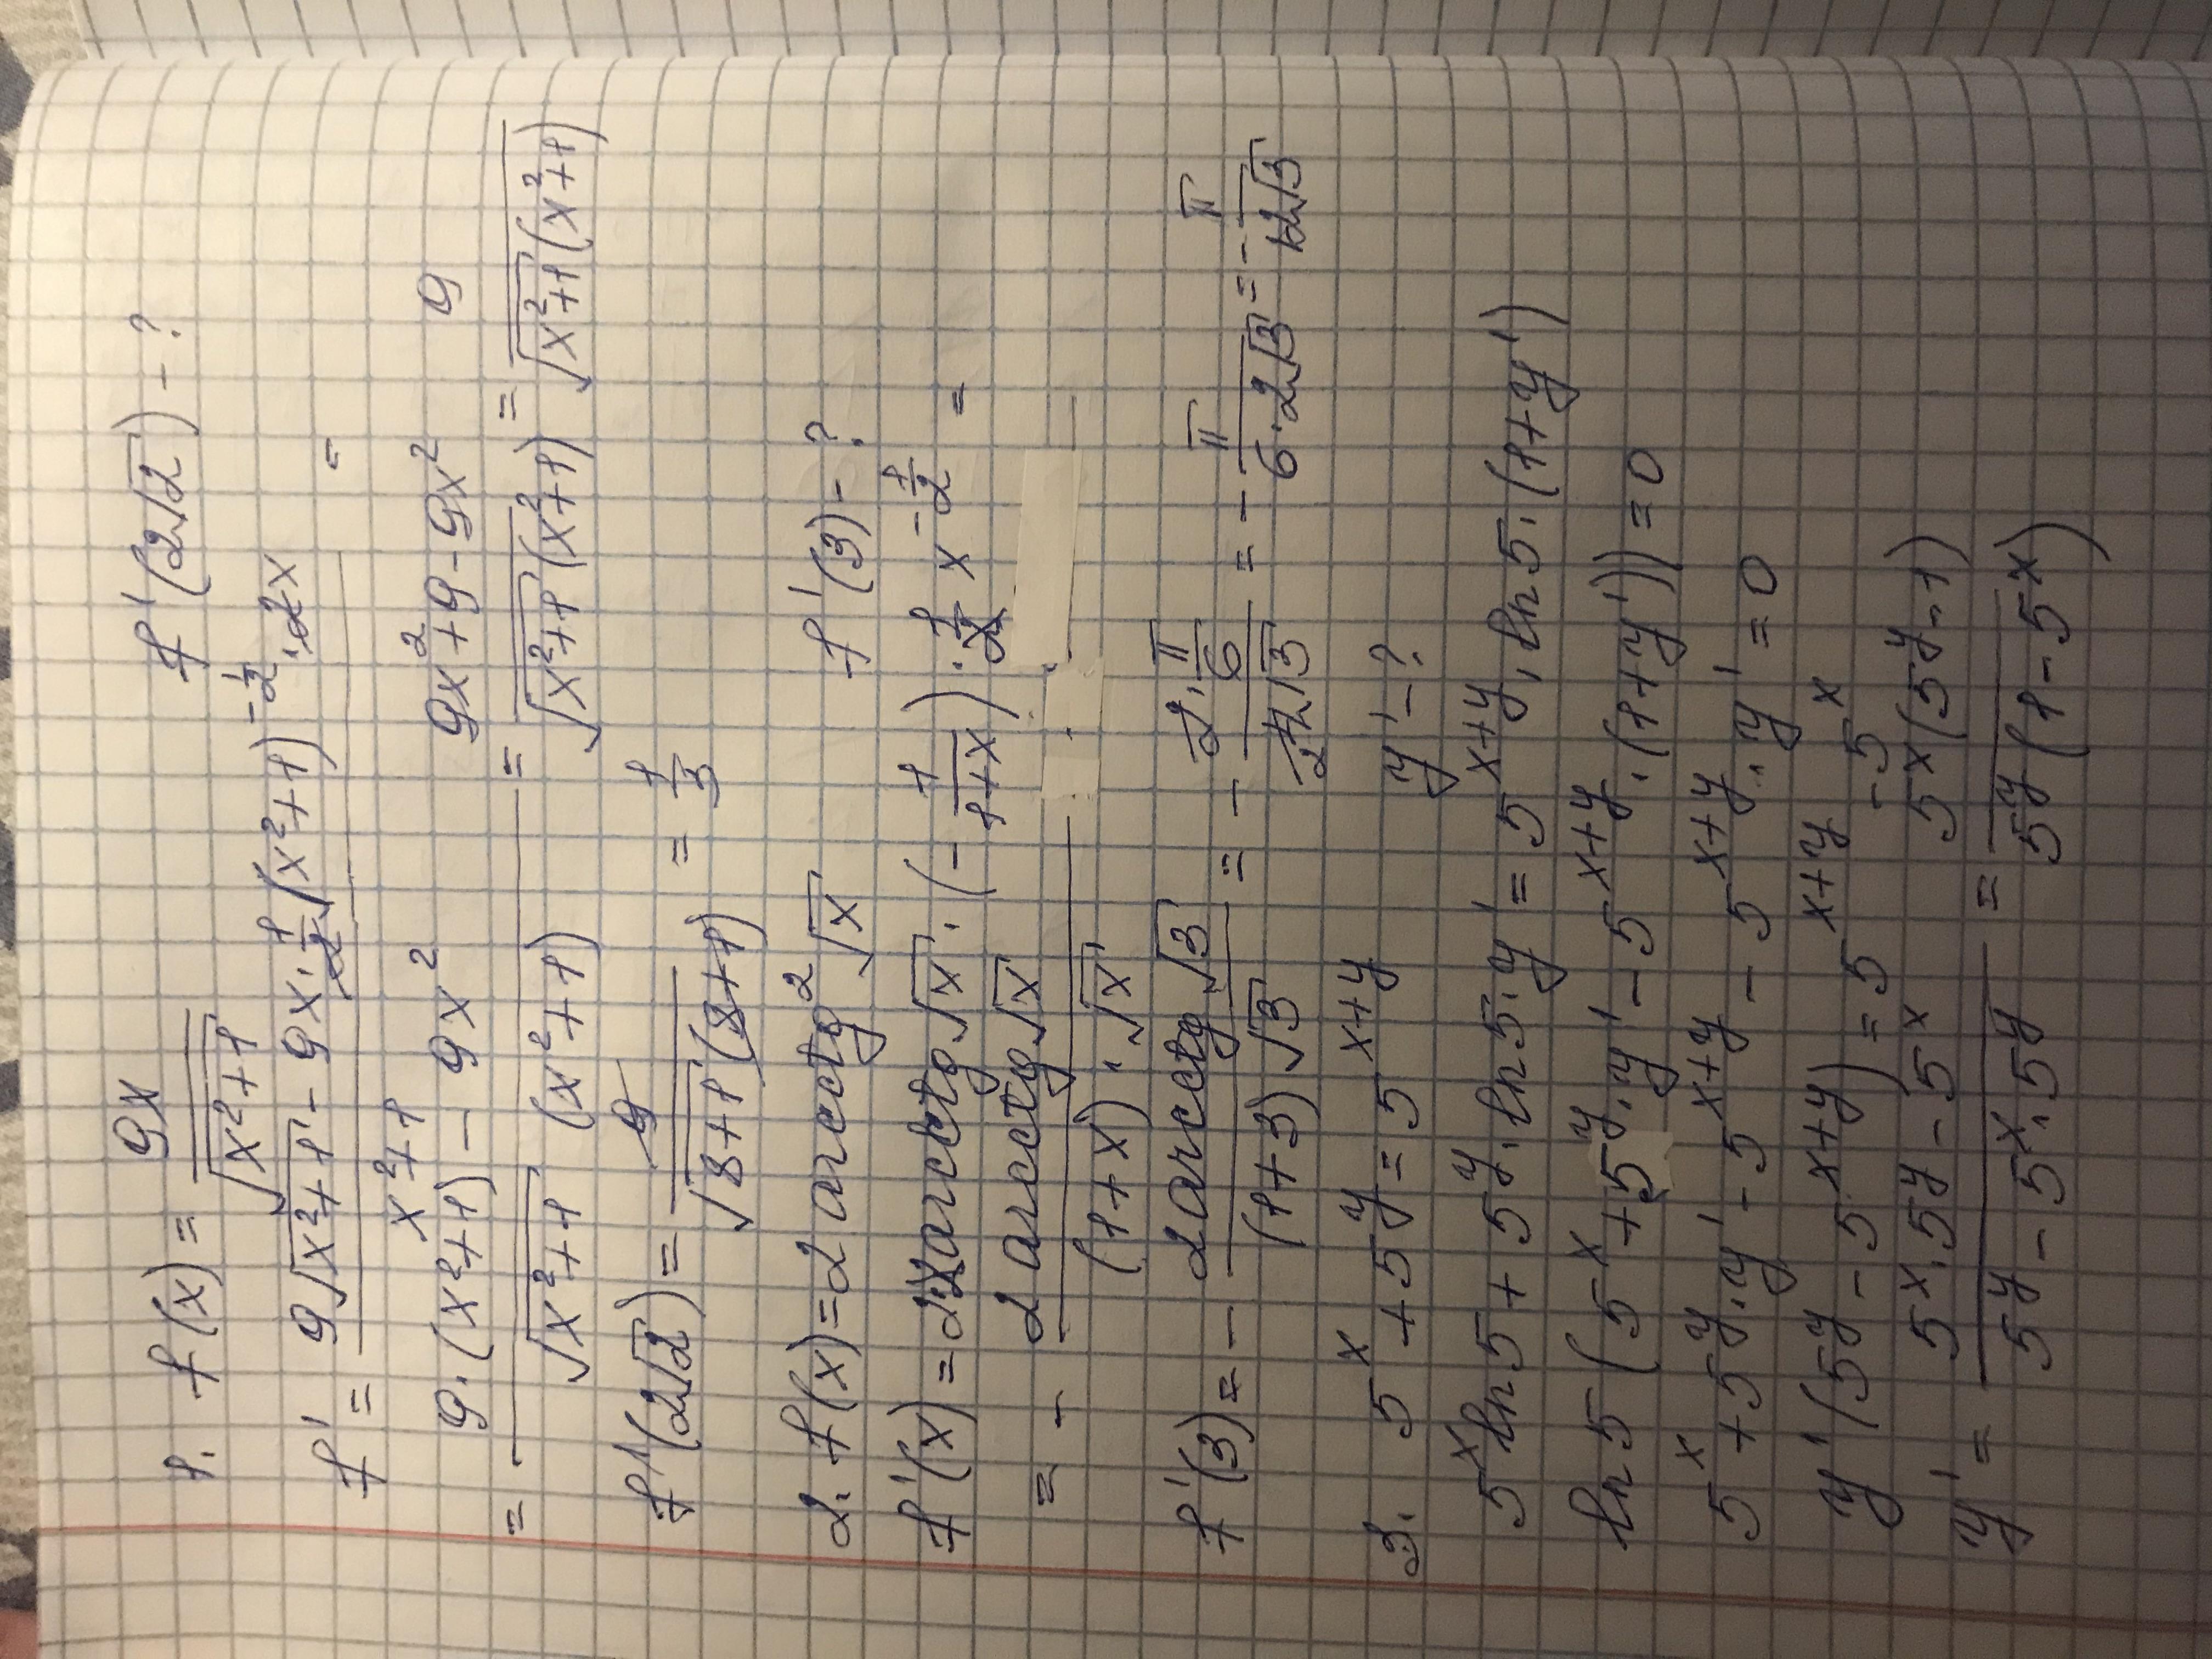 1. f(x) = 9x/√(x²+1)   f'(2√2) - ?
f' = (9√(x²+1) - 9x · 1/2 (x²+1)^(-1/2) · 2x)/(x²+1) =
= (9·(x²+1) - 9x²)/(√(x²+1) (x²+1)) = (9x²+9-9x²)/(√(x²+1) (x²+1)) = 9/(√(x²+1) (x²+1))
f'(2√2) = 9/(√(8+1) (8+1)) = 1/3
2. f(x) = 2 arcctg² √x   f'(3) - ?
f'(x) = 2·2 arcctg √x · (-1/(1+x)) · 1/2 x^(-1/2) =
= - (2 arcctg √x)/((1+x) · √x)
f'(3) = - (2 arcctg √3)/((1+3)√3) = - (2 · π/6)/(4√3) = - π/(6·2√3) = - π/(12√3)
3. 5^x + 5^y = 5^(x+y)   y' - ?
5^x ln5 + 5^y · ln5 · y' = 5^(x+y) · ln5 · (1+y')
ln5 (5^x + 5^y · y' - 5^(x+y) · (1+y')) = 0
5^x + 5^y · y' - 5^(x+y) - 5^(x+y) · y' = 0
y' (5^y - 5^(x+y)) = 5^(x+y) - 5^x
y' = (5^x · 5^y - 5^x)/(5^y - 5^x · 5^y) = (5^x (5^y - 1))/(5^y (1 - 5^x))